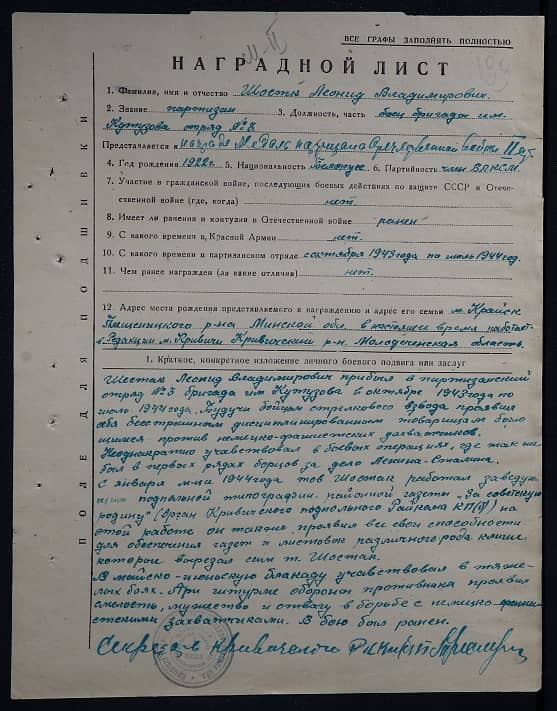 ВСЕ ГРАФЫ ЗАПОЛНЯТЬ ПОЛНОСТЬЮ
НАГРАДНОЙ ЛИСТ
1. Фамилия, имя и отчество Шостак Леонид Владимирович.
2. Звание партизан 3. Должность, часть боец бригады им.
Кутузова отряд №
Представляется к награде Медаль партизана отечественной войны II ст.
4. Год рождения 1922г. 5. Национальность Белорус 6. Партийность член ВЛКСМ.
7. Участие в гражданской войне, последующих боевых действиях по защите СССР и Отече-
ственной войне (где, когда) нет.
8. Имеет ли ранения и контузии в Отечественной войне ранен
9. С какого времени в Красной Армии нет.
10. С какого времени в партизанском отряде сентября 1943 года по июль 1944 год.
11. Чем ранее награжден (за какие отличия) нет.
12. Адрес места рождения представляемого к награждению и адрес его семьи м. Крайск
Плещеницкого р-на Минской обл. в настоящее время работает
в Редакции м. Кривичи Кривичский р-н. Молодеченская область.
1. Краткое, конкретное изложение личного боевого подвига или заслуг
Шостак Леонид Владимирович прибыл в партизанский
отряд №3 бригада им Кутузова в октябре 1943 года по
июль 1944 года. Будучи бойцом стрелкового взвода проявил
себя бесстрашным дисциплинированным товарищам борю-
щимся против немецко-фашистских захватчиков.
Неоднократно учавствовал в боевых операциях, где так же
был в первых рядах борцов за дело Ленина-Сталина.
С января м-ца 1944 года тов Шостак работал заведую-
подпольной типографии районной газеты „За советскую
родину" (Орган Кривичского подпольного Райкома КП(б)) на
этой работе он также проявил все свои способности
для обеспечения газет и листовок различного рода клише
которые вырезал сам т. Шостак.
В майско-июньскую блакаду учавствовал в тяже-
лых боях. При штурме обороны противника проявил
смелость, мужество и отвагу в борьбе с немецко-фаши-
стскими захватчиками. В бою был ранен.
Секретарь Кривичского
ПОЛЕ ДЛЯ ПОДШИВКИ